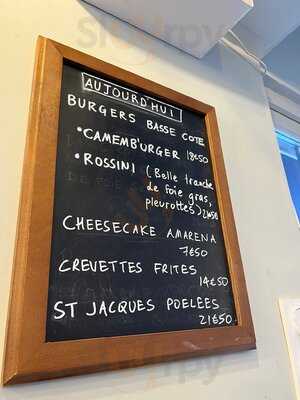 AUJOURD'HUI
BURGERS BASSE COTE
• CAMEMBURGER 18€50
• ROSSINI (Belle tranche
de foie gras,
pleurottes) 21€50
CHEESECAKE AMARENA
7€50
CREVETTES FRITES
14€50
ST JACQUES POELEES
21€50